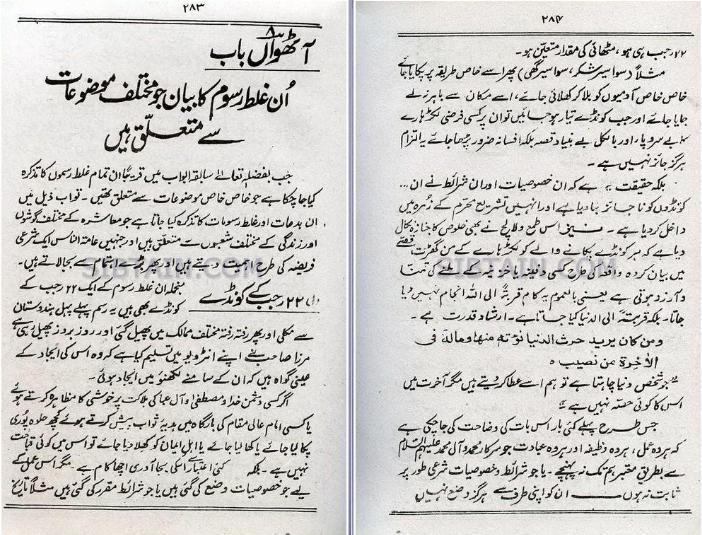 ۲۸۳
آٹھواں باب ۸
اُن غلط رسوم کا بیان جو مختلف موضوعات
سے متعلق ہیں
جب بفضلہ تعالےٰ سابقہ ابواب میں قریباً ان تمام غلط رسموں کا تذکرہ
کیا جا چکا ہے جو خاص خاص موضوعات سے متعلق تھیں۔ تو اب ذیل میں
ان بدعات اور غلط رسومات کا تذکرہ کیا جاتا ہے جو معاشرہ کے مختلف گوشوں
اور زندگی کے مختلف شعبوں سے متعلق ہیں اور جنہیں عامۃ الناس ایک شرعی
فریضہ کی طرح بجالاتے ہیں۔
منجملہ ان غلط رسوم کے ایک ۲۲ رجب کے
(۱) ۲۲ رجب کے کونڈے
کونڈے بھی ہیں۔ یہ رسم پہلے پہل ہندوستان
سے نکلی اور پھر رفتہ رفتہ مختلف ممالک میں پھیل گئی اور روز بروز پھیل رہی ہے
مرزا صاحب نے اپنے انٹرویو میں تسلیم کیا ہے کہ وہ اس کی ایجاد کے
عینی گواہ ہیں کہ ان کے سامنے لکھنؤ میں ایجاد ہوئی۔
اگر کسی دشمن خدا و مصطفیٰ و آل عبا کی ہلاکت پر خوشی کا مظاہرہ کرتے ہوئے
یا کسی امام عالی مقام کی بارگاہ میں ہدیہ ثواب پیش کرتے ہوئے کچھ حلوہ پوری
پکا لیا جائے یا کھا لیا جائے یا اہل ایمان کو کھلا دیا جائے تو اس میں کوئی قباحت
نہیں ہے۔ بلکہ کئی اعتبار سے اسکی بجا آوری اچھا کام ہے۔ مگر اس عمل کے
لیے جو خصوصیات وضع کی گئی ہیں یا جو شرائط مقرر کی گئی ہیں مثلاً تاریخ
۲۸۴
۲۲ رجب ہی ہو، مٹھائی کی مقدار متعین ہو۔
مثلاً (سوا سیر شکر، سوا سیر گھی) پھر اسے خاص طریقہ پر پکایا جائے
خاص خاص آدمیوں کو بلا کر کھلائی جائے، اسے مکان سے باہر نہ لے
جایا جائے اور جب کونڈے تیار ہو جائیں تو ان پر کسی فرضی لکڑہارے
کا بے سروپا، اور بالکل بے بنیاد قصہ بلکہ افسانہ ضرور پڑھا جائے یہ التزام
ہرگز جائز نہیں ہے۔
بلکہ حقیقت یہ ہے کہ ان خصوصیات اور ان شرائط نے ان
کونڈوں کو ناجائز بنا دیا ہے اور انہیں تشریع محرم کے زمرہ میں
داخل کر دیا ہے۔ نیز اس طمع و لالچ نے بھی خلوص کا جنازہ نکال
دیا ہے کہ ہر کونڈے پکانے والے کو لکڑہارے کے من گھڑت قصے
میں بیان کردہ واقعہ کی طرح کسی دفینہ یا خزینہ کے ملنے کی تمنا
و آرزو ہوتی ہے یعنی بالعموم یہ کام قربۃً الی اللہ انجام نہیں دیا
جاتا۔ بلکہ قربۃً الی الدنیا کیا جاتا ہے۔ ارشاد قدرت ہے۔
ومن کان یرید حرث الدنیا نؤتہ منھا ومالہ فی
الاٰخرۃ من نصیب ہ
"جو شخص دنیا چاہتا ہے تو ہم اسے عطا کر دیتے ہیں مگر آخرت میں
اس کا کوئی حصہ نہیں ہے"
جس طرح پہلے کئی بار اس بات کی وضاحت کی جا چکی ہے
کہ ہر وہ عمل، ہر وہ وظیفہ اور ہر وہ عبادت جو سرکار محمد و آل محمد علیہم السلام
سے بطریق معتبر ہم تک نہ پہنچے۔ یا جو شرائط و خصوصیات شرعی طور پر
ثابت نہ ہوں — ان کو اپنی طرف سے ہرگز وضع نہیں
SIBTAIN.COM
SIBTAIN.COM